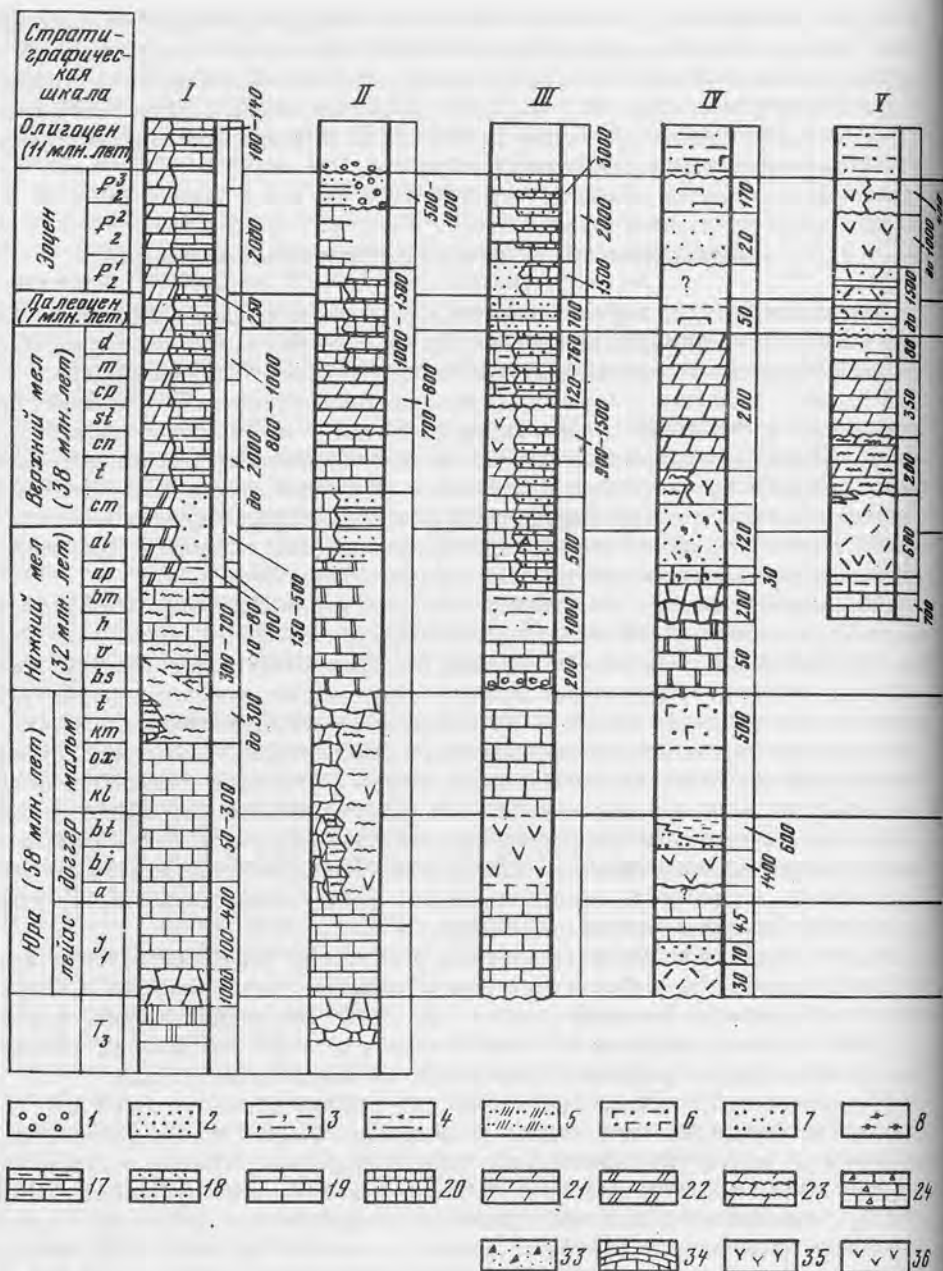 Страти-
графичес-
кая
шкала
I
II
III
IV
V
Олигоцен
(11 млн. лет)
Эоцен
P₂³
P₂²
P₂¹
Палеоцен
(7 млн. лет)
Верхний мел
(36 млн. лет)
d
m
cp
st
cn
t
cm
Нижний мел
(32 млн. лет)
al
ap
bm
h
v
bs
Юра (58 млн. лет)
мальм
t
km
ox
kl
доггер
bt
bj
a
лейас
J₁
T₃
100–140
2000
250
800–1000
2000
300–700
40–80
100
до 300
50–300
100–400
1000
500–
1000
1000–1500
700–800
150–500
3000
2000
1500
700
120–760
800–1500
500
1000
200
170
20
50
200
120
30
200
50
500
600
1400
45
70
30
до 1500
350
200
600
700
1
2
3
4
5
6
7
8
17
18
19
20
21
22
23
24
33
34
35
36